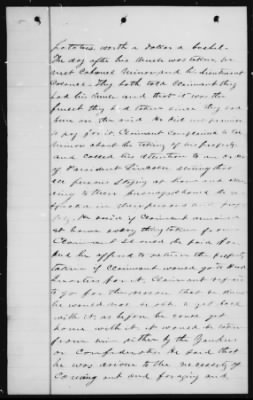 Potatoes, worth a dollar a bushel.
The day after his mule was taken, he
met Colonel Minor and his Lieutenant
Colonel. They both told claimant they
had his mule and that it was the
finest they had taken since they had
been on the raid. He did not promise
to pay for it. Claimant complained to Col
Minor about the taking of his property
and called his attention to an order
of President Lincoln securing
all persons staying at home and
to them
in their persons and property
He said if claimant remained
at home every thing taken from
Claimant should be paid for.
And he offered to return the property
taken if claimant would go to Head
Quarters for it. Claimant
to go for the reason that he knew
he would not be able to get back
with it, as before he could get
home with it it would be taken
from him either by the Yankees
or Confederates. He said that
he was aware to the necessity of
coming out and foraging and